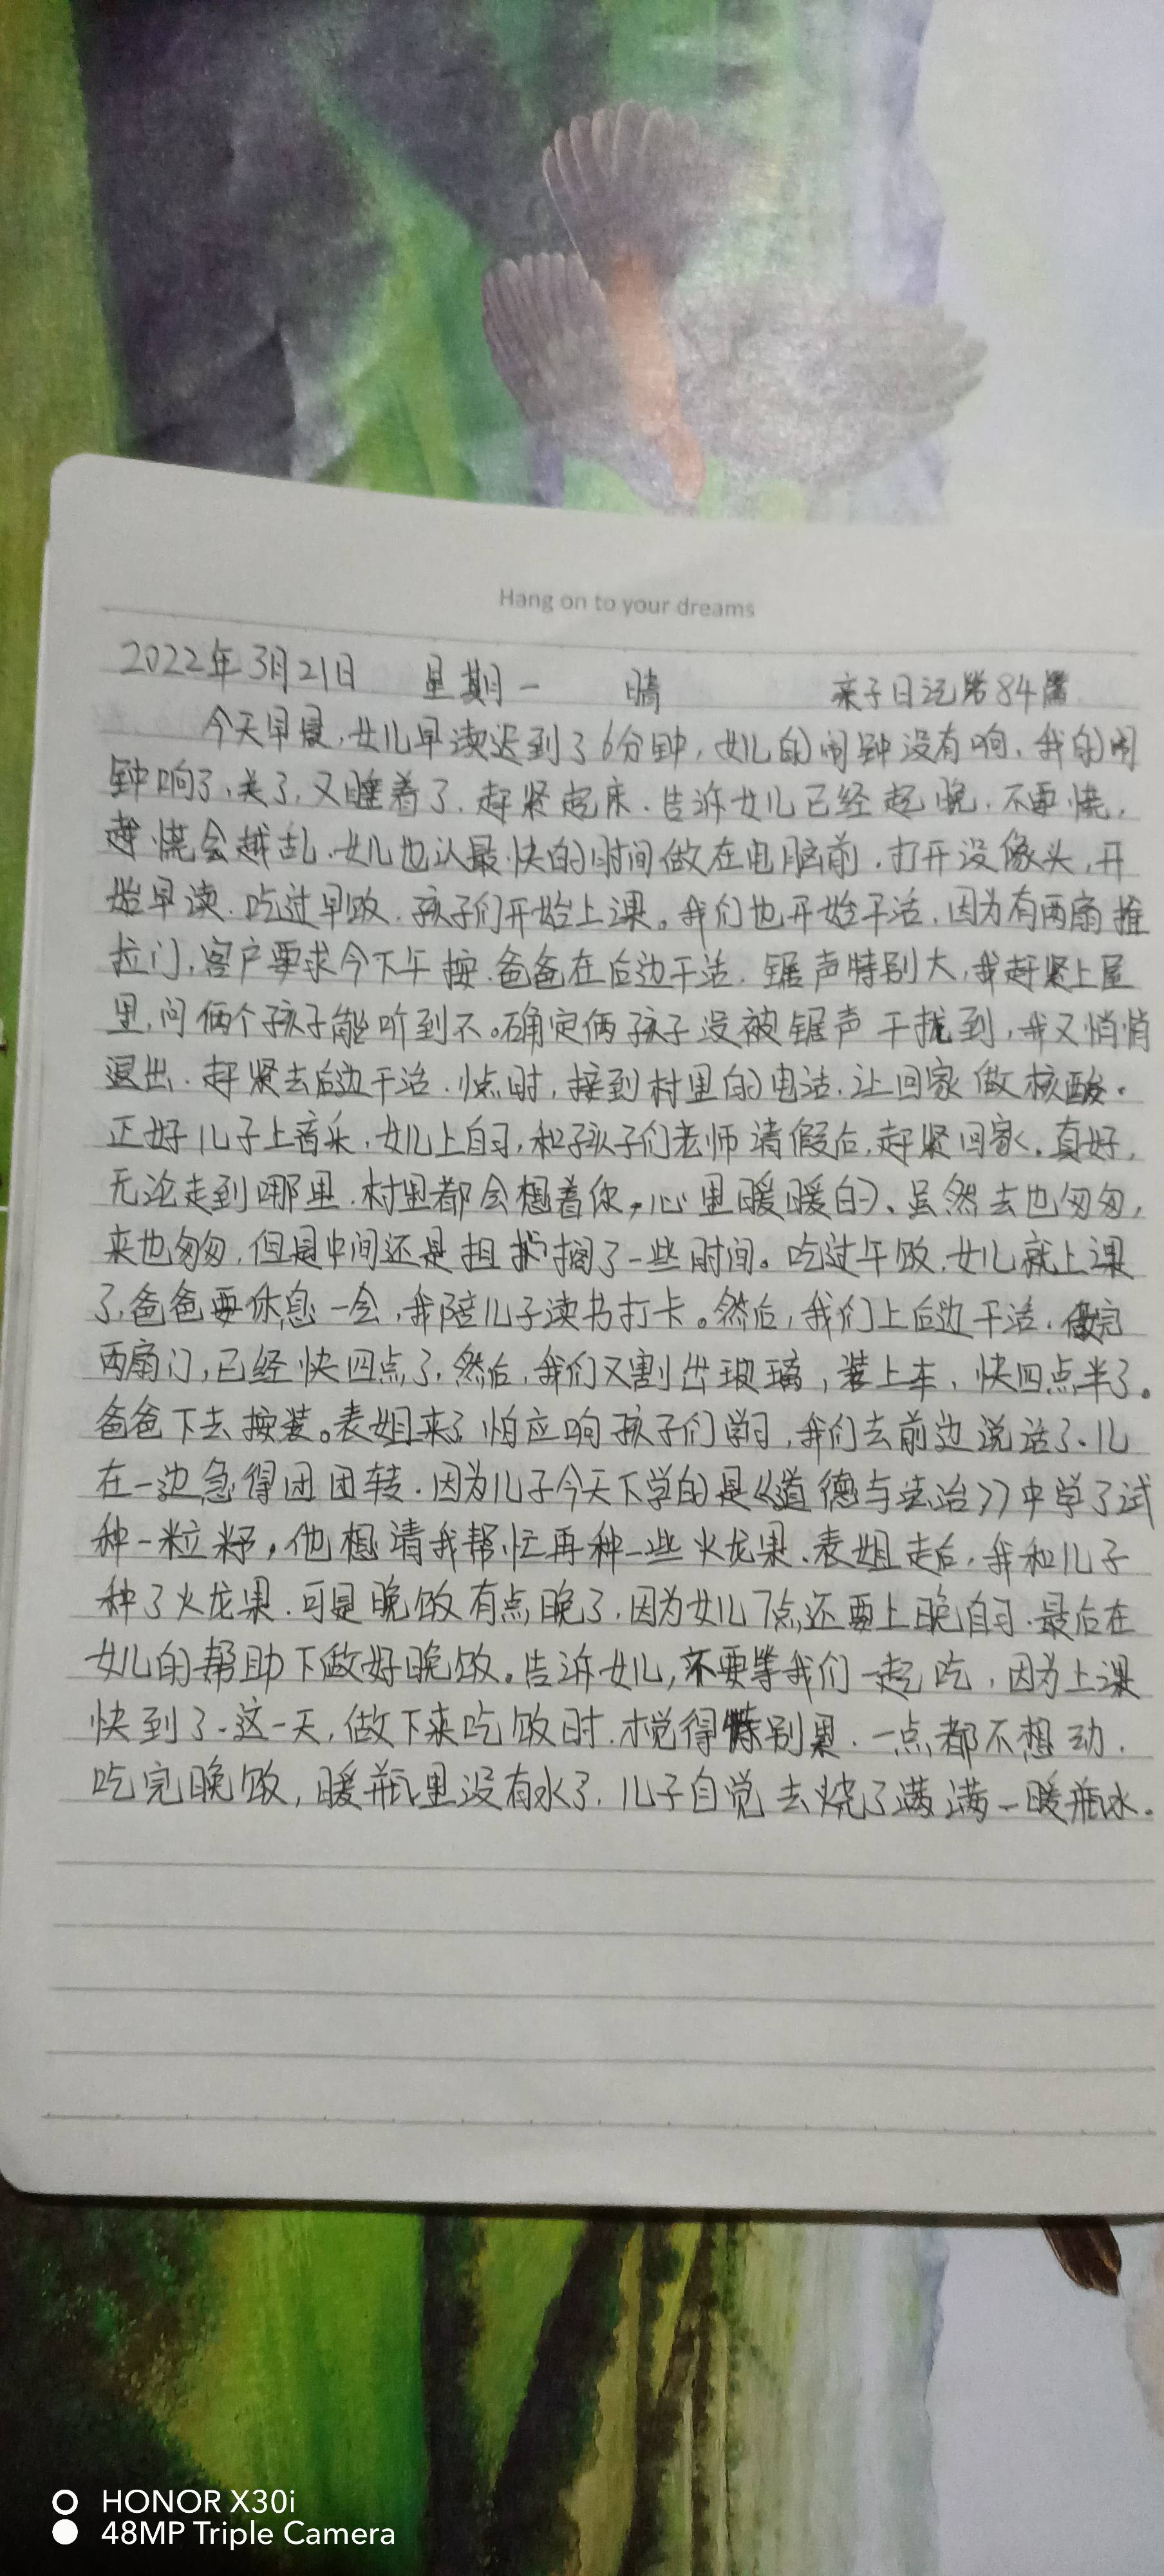 Hang on to your dreams
2022年3月21日 星期一 晴 亲子日记第84篇
今天早晨,女儿早读迟到了6分钟,女儿的闹钟没有响,我的闹
钟响了,关了,又睡着了.赶紧起床.告诉女儿已经起晚,不要慌,
越慌会越乱.女儿也以最快的时间做在电脑前.打开设像头,开
始早读.吃过早饭.孩子们开始上课。我们也开始干活,因为有两扇推
拉门,客户要求今下午按.爸爸在后边干活.锯声特别大,我赶紧上屋
里,问俩个孩子能听到不。确定俩孩子没被锯声干扰到,我又悄悄
退出.赶紧去后边干活.10点时,接到村里的电话.让回家做核酸.
正好儿子上音乐,女儿上自习,和孩子们老师请假后,赶紧回家.真好,
无论走到哪里.村里都会想着你,心里暖暖的、虽然去也匆匆,
来也匆匆,但是中间还是担搁了一些时间。吃过午饭.女儿就上课
了,爸爸要休息一会,我陪儿子读书打卡。然后,我们上后边干活.做完
两扇门,已经快四点了,然后,我们又割出玻璃,装上车,快四点半了。
爸爸下去按装。表姐来了,怕应响孩子们学习,我们去前边说话了.儿
在一边急得团团转.因为儿子今天下学的是《道德与法治》中学了试
种一粒籽,他想请我帮忙再种一些火龙果、表姐走后,我和儿子
种了火龙果.可是晚饭有点晚了.因为女儿7点还要上晚自习.最后在
女儿的帮助下做好晚饭。告诉女儿,不要等我们一起吃,因为上课
快到了.这一天,做下来吃饭时.才觉得特别累.一点都不想动.
吃完晚饭,暖瓶里没有水了.儿子自觉去烧了满满一暖瓶水.
HONOR X30i
48MP Triple Camera